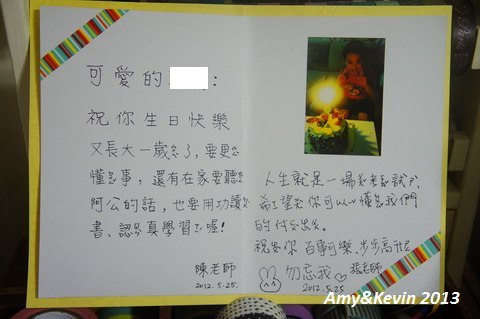 可愛的    :
祝你生日快樂
又長大一歲了,要更
懂事,還有在家要聽
阿公的話,也要用功讀
書、認真學習喔!
陳老師
2012.5.25.
人生就是一場考試
希望你可以懂我們
的付出
祝你 百事可樂,步步高升
勿忘我 張老師
2012.5.25
Amy&Kevin 2013